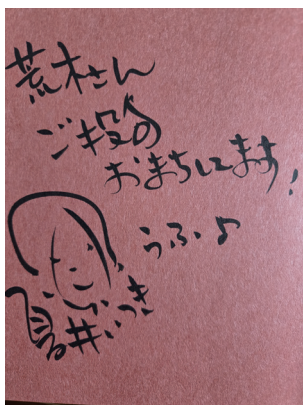 荒木さん
ご投句
おまちしてます!
うふっ♪
夏井いつき